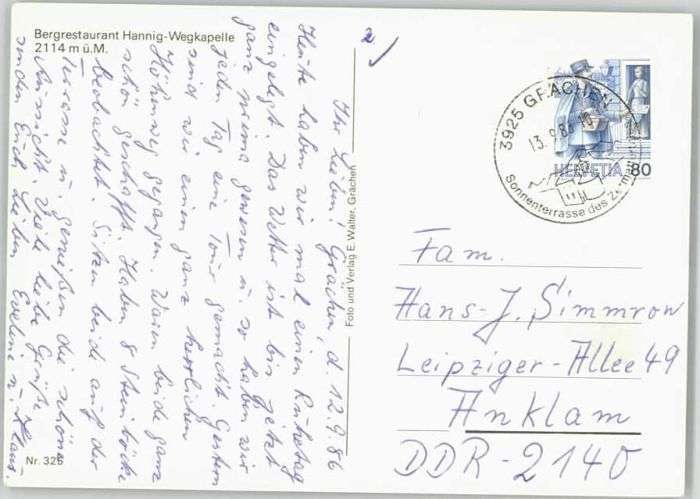 Bergrestaurant Hannig-Wegkapelle
2114 m ü.M.
Ihr Lieben. Grächen, d. 12.9.86
Heute haben wir mal einen Ruhetag
eingelegt. Das Wetter ist bis jetzt
ganz prima gewesen u. so haben wir
jeden Tag eine Tour gemacht. Gestern
sind wir einen ganz herrlichen
Höhenweg gegangen. Waren beide ganz
schön geschafft. Haben 8 Steinböcke
beobachtet. Sitzen beide auf der
Terasse u. genießen die schöne
Aussicht. Viele liebe Grüße
senden Euch Lieben Evelin u. Klaus
Nr. 325
Foto und Verlag E. Walter, Grächen
2
3925 GRÄCHEN
13.9.86
Sonnenterrasse des
HELVETIA 80
Fam.
Hans-J. Simmrow
Leipziger-Allee 49
Anklam
DDR-2140